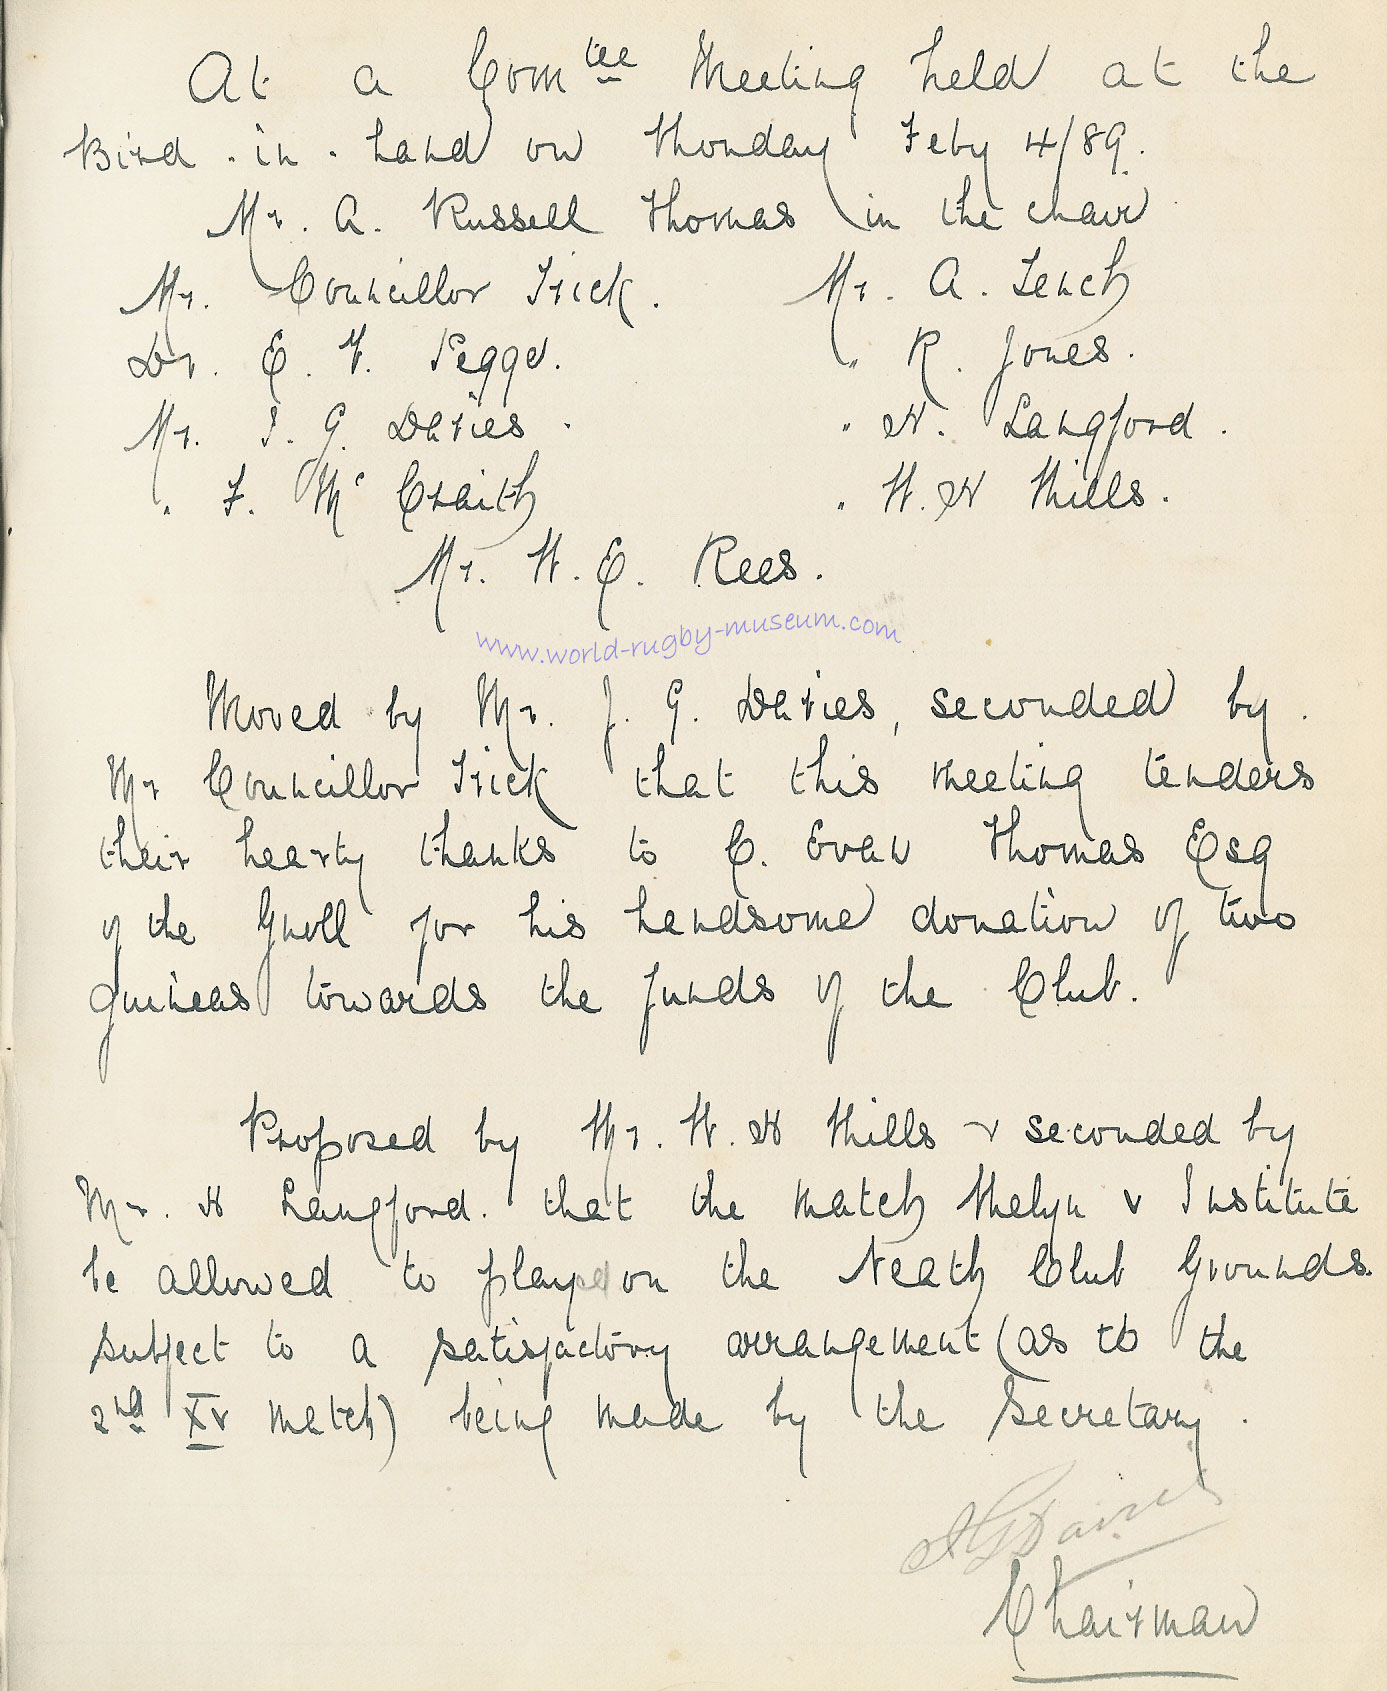 At a Comtee Meeting held at the
Bird-in-hand on Monday Feby 4/89.
Mr. A. Russell Thomas in the chair
Mr. Councillor Trick. Mr. A. Tench
Dr. E. V. Pegge. " R. Jones.
Mr. J. G. Davies. " H. Langford.
" F. Mc Craith " W. H Mills.
Mr. W. E. Rees.
www.world-rugby-museum.com
Moved by Mr. J. G. Davies, seconded by
Mr Councillor Trick that this meeting tenders
their hearty thanks to C. Evan Thomas Esq
of the Gnoll for his handsome donation of two
guineas towards the funds of the Club.
Proposed by Mr. W. H Mills & seconded by
Mr. H Langford. that the match Melyn v Institute
be allowed to played on the Neath Club Grounds
subject to a satisfactory arrangement (as to the
2nd XV match) being made by the Secretary.
J G Davies
Chairman